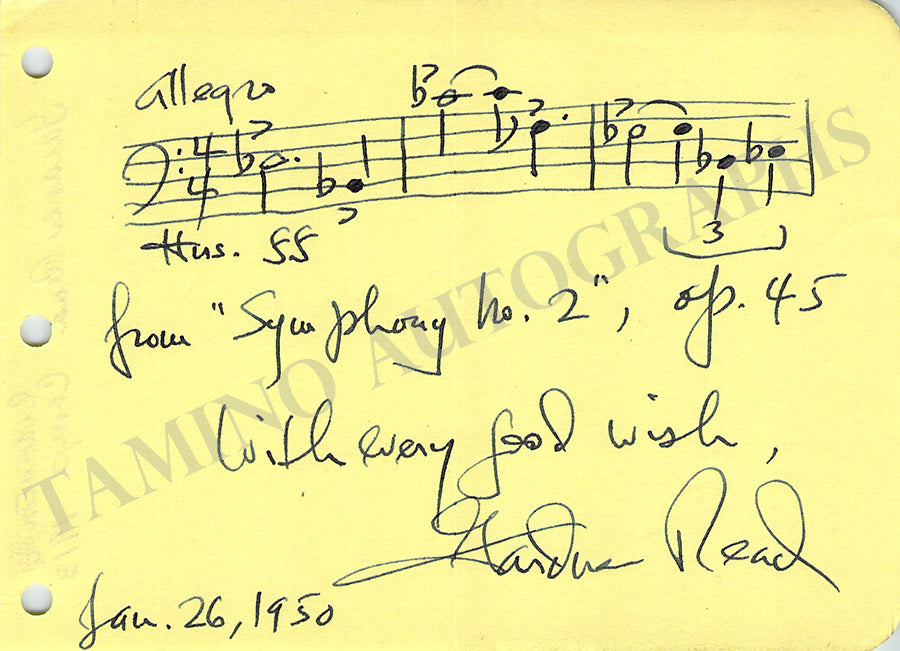 Allegro
4
4
Hns. ff
3
from "Symphony No. 2", op. 45
With every good wish,
Gardner Read
Jan. 26, 1950
TAMINO AUTOGRAPHS